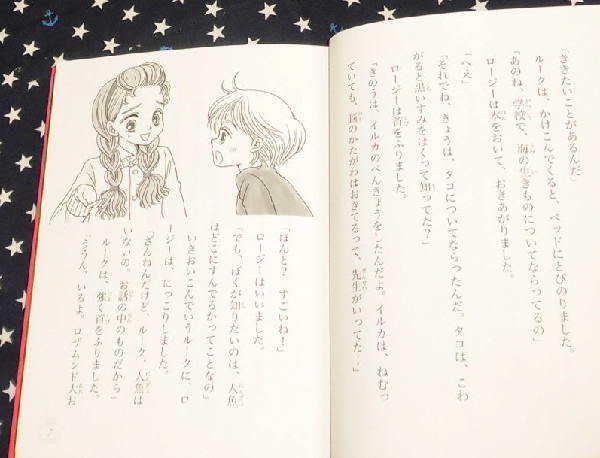 「ききたいことがあるんだ」
ルークは、かけこんでくると、ベッドにとびのりました。
「あのね、学校で、海の生きものについてならってるの」
ロージーは本をおいて、おきあがりました。
「へえ」
「それでね、きょうは、タコについてならったんだ。タコは、こわ
がると黒いすみをはくって知ってた？」
ロージーは首をふりました。
「きのうは、イルカのべんきょうをしたんだよ。イルカは、ねむっ
ていても、脳のかたがわはおきてるって、先生がいってた！」
「ほんと？　すごいね！」
ロージーはいいました。
「でも、ぼくが知りたいのは、人魚
はどこにすんでるかってことなの」
いきおいこんでいうルークに、ロ
ージーは、にっこりしました。
「ざんねんだけど、ルーク、人魚は
いないの。お話の中のものだから」
ルークは、強く首をふりました。
「ううん、いるよ。ロザムンド大お
7